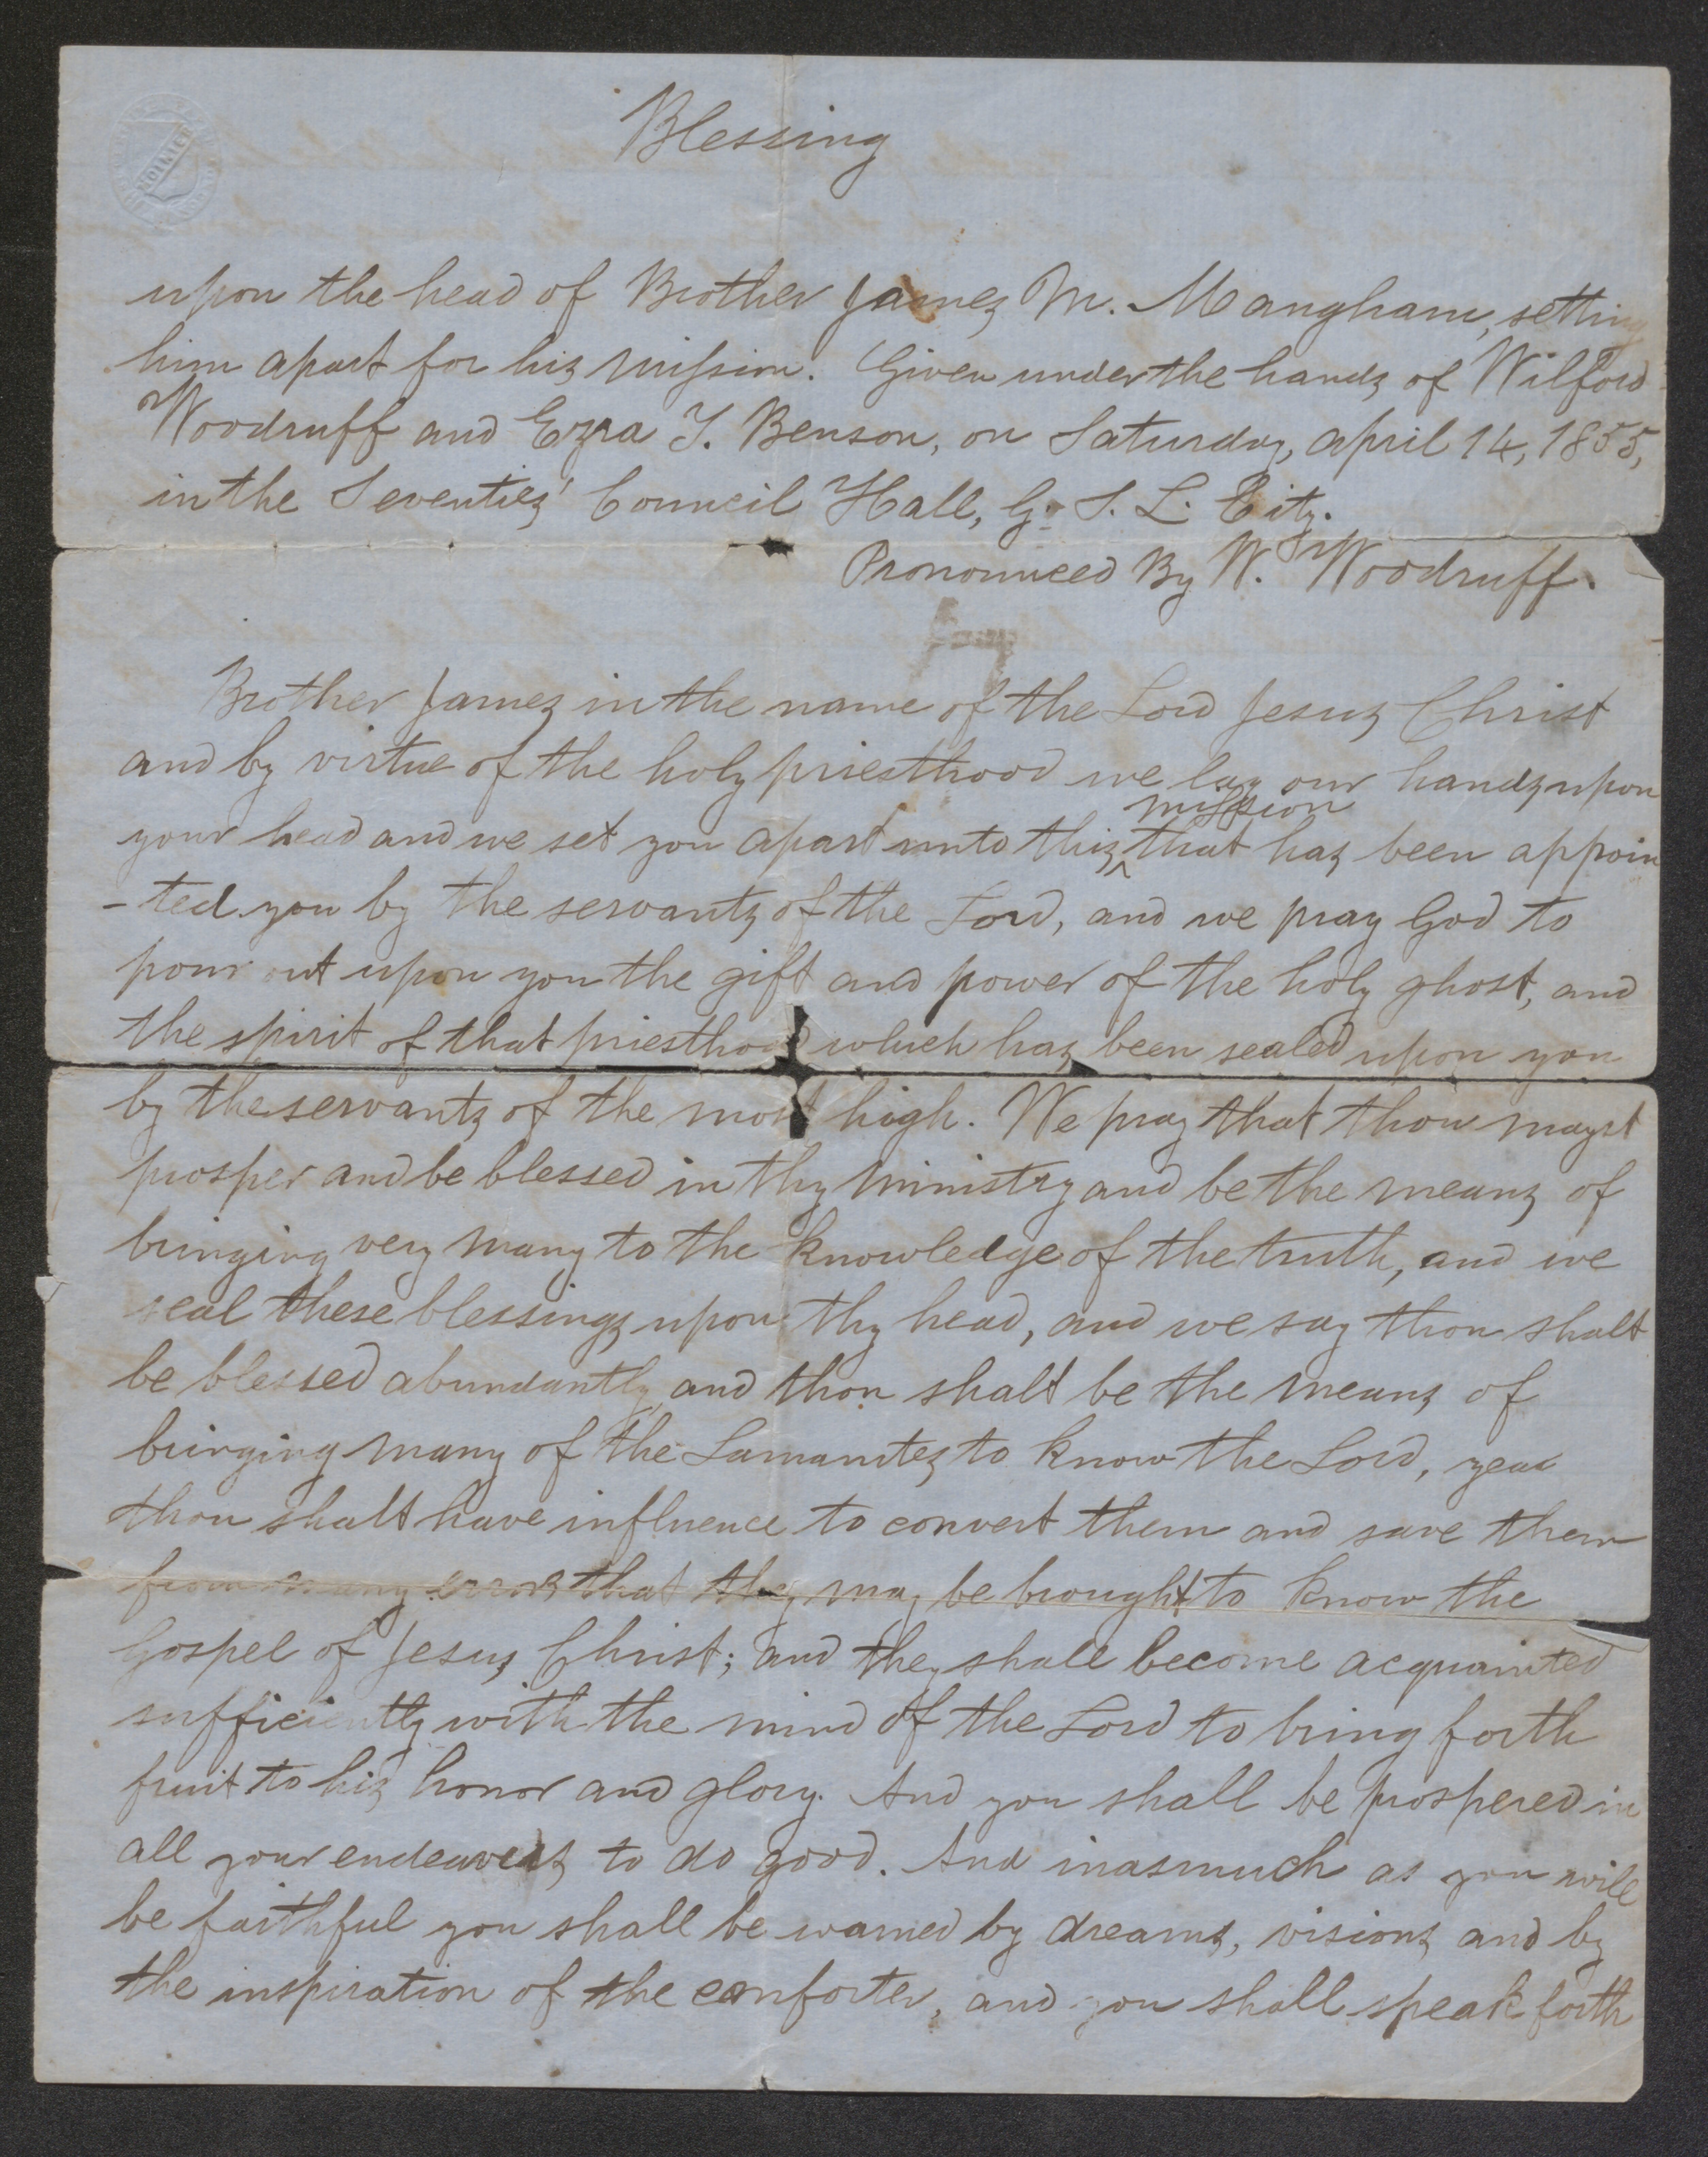 Blessing
upon the head of Brother James M. Mangham, setting
him apart for his mission. Given under the hands of Wilford
Woodruff and Ezra T. Benson, on Saturday, April 14, 1855,
in the Seventies' Council Hall, G. S. L. City.
Pronounced By W. Woodruff.
Brother James in the name of the Lord Jesus Christ
and by virtue of the holy priesthood we lay our hands upon
mission
your head and we set you apart unto this ^ that has been appoin
-ted you by the servants of the Lord, and we pray God to
pour out upon you the gift and power of the holy ghost, and
the spirit of that priesthood which has been sealed upon you
by the servants of the most high. We pray that thou mayst
prosper and be blessed in thy ministry and be the means of
bringing very many to the knowledge of the truth, and we
seal these blessings upon thy head, and we say thou shalt
be blessed abundantly, and thou shalt be the means of
bringing many of the Lamanites to know the Lord, yea
thou shalt have influence to convert them and save them
from many errors that they may be brought to know the
Gospel of Jesus Christ; and they shall become acquainted
sufficiently with the mind of the Lord to bring forth
fruit to his honor and glory. And you shall be prospered in
all your endeavors to do good. And inasmuch as you will
be faithful you shall be warned by dreams, visions and by
the inspiration of the comforter, and you shall speak forth